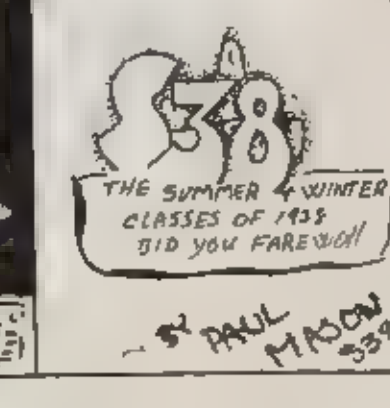 S38
THE SUMMER & WINTER
CLASSES OF 1938
BID YOU FAREWELL
— BY PAUL MASON
S39